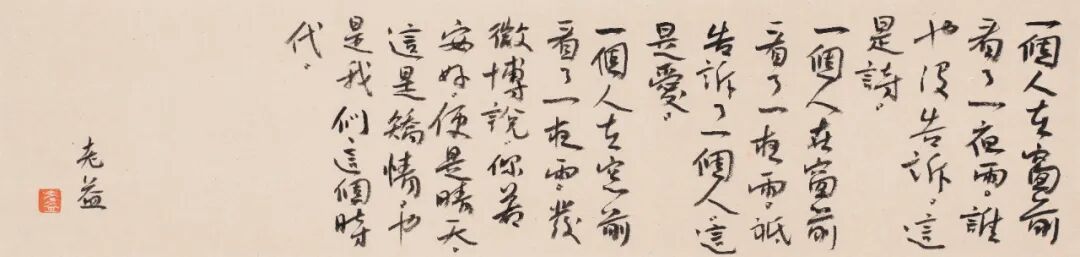 一個人在窗前
看了一夜雨。誰
也沒告訴。這
是詩。
一個人在窗前
看了一夜雨。祗
告訴了一個人這
是愛。
一個人在窓前
看了一夜雨。發
微博說。你若
安好。便是晴天。
這是矯情。也
是我們這個時
代。
老益
老益